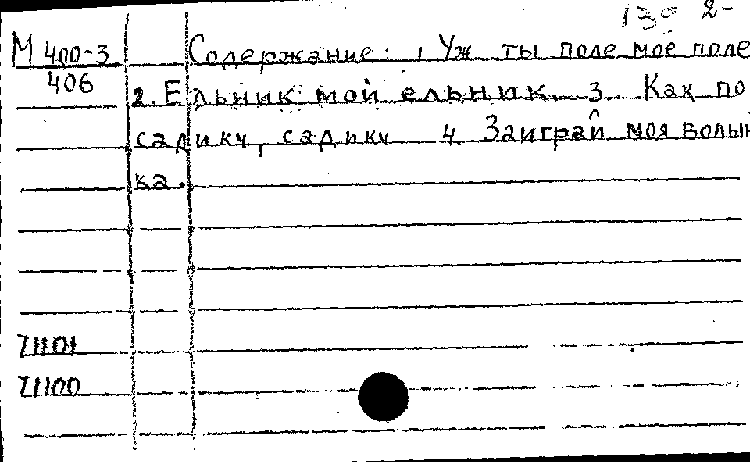 130 2-
М 400-3 Содержание: 1 Уж ты поле моё поле
406 2. Ельник мой ельник 3 Как по
садику, садику 4 Заиграй моя волын
ка.
71101
71100